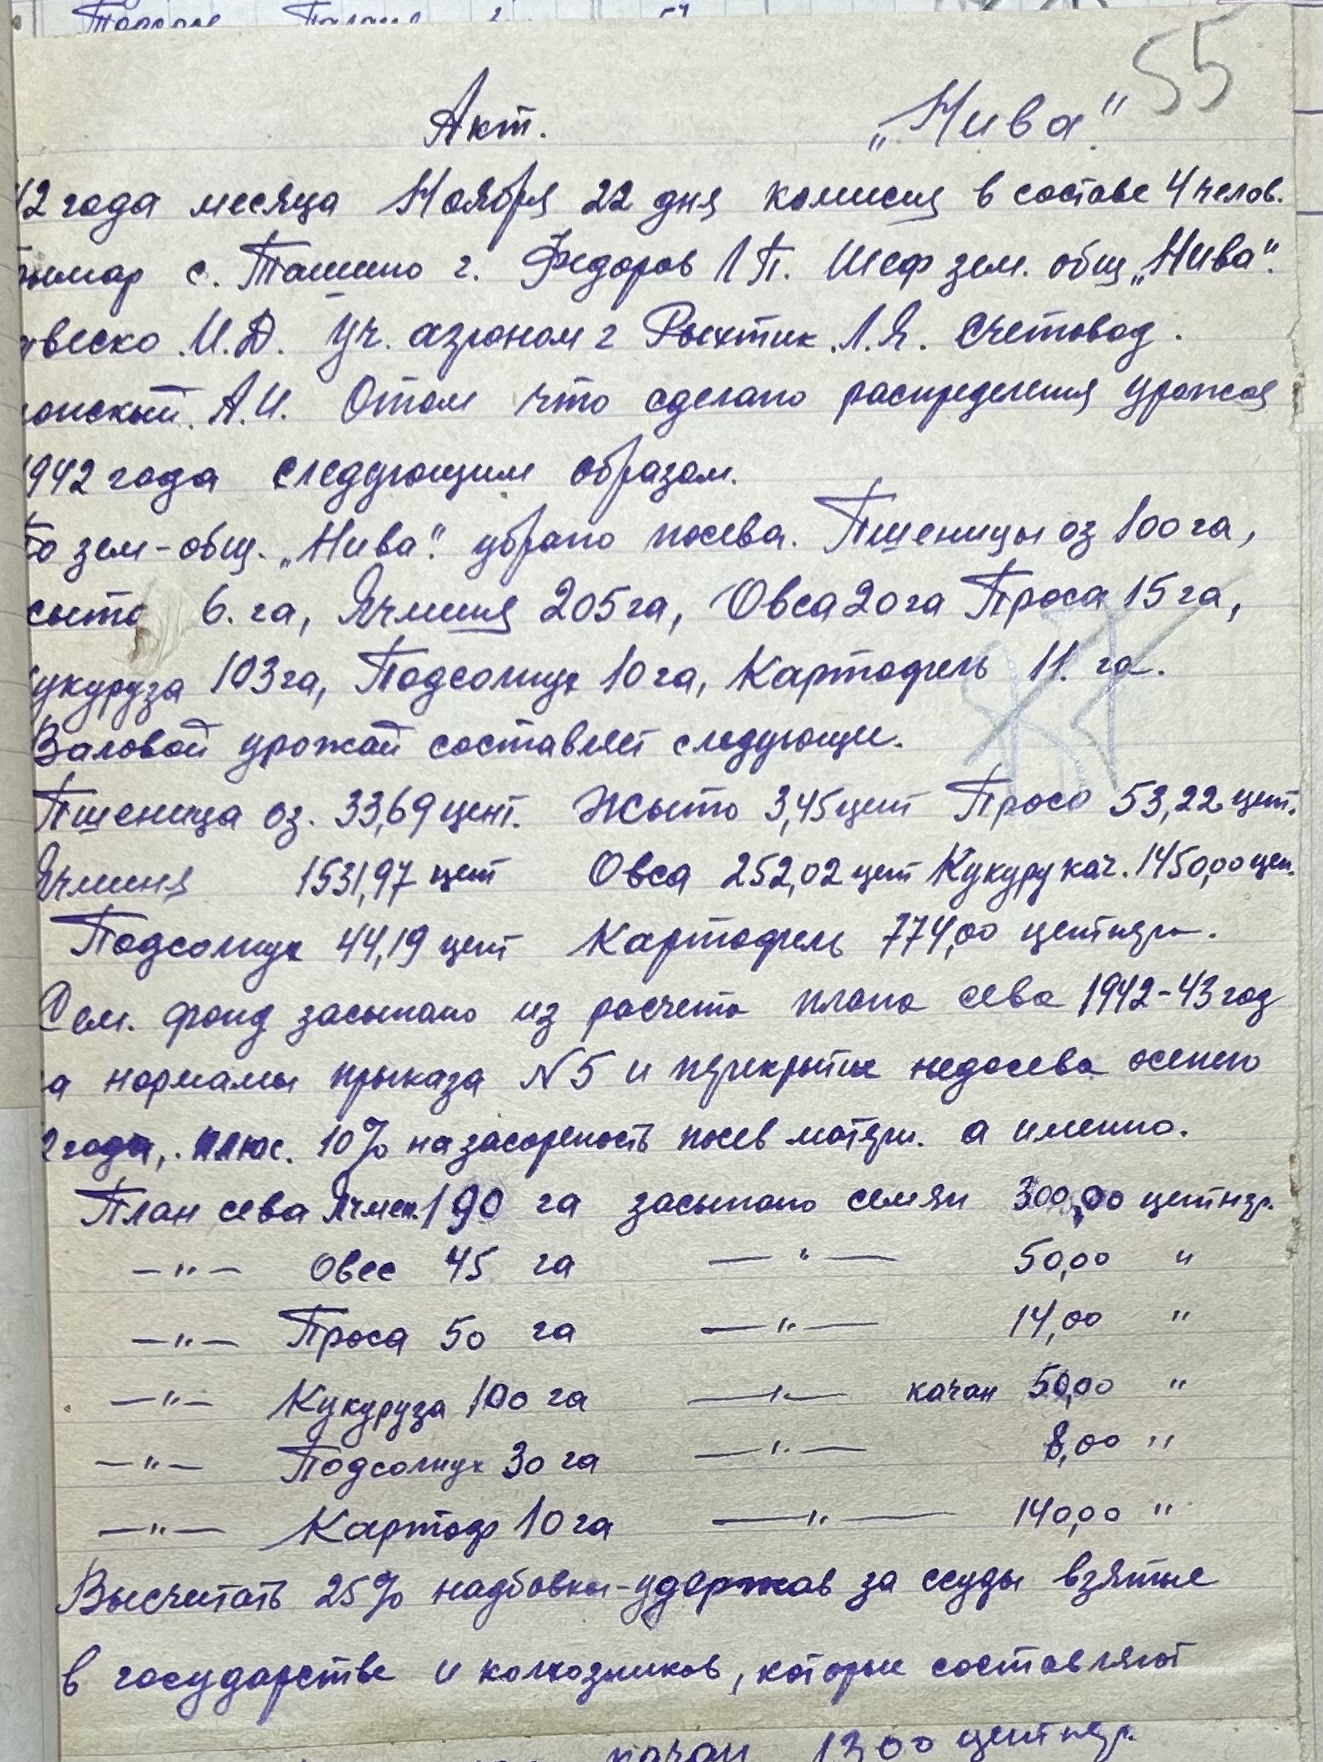 55
Акт. „Нива"
42 года месяца Ноября 22 дня комисия в составе 4 челов.
с. Ташино г. Федоров Л П. Шеф зем. общ „Нива".
И.Д. Уч. агроном г Рыхтик Л.Я. счетовод.
А.И. Отом что сделано распределения урожоя
1942 года следующим образом.
По зем-общ. „Нива". убрано посева. Пшеницы оз 100 га,
6. га, Ячминя 205 га, Овса 20 га Проса 15 га,
укуруза 103 га, Подсолнух 10 га, Картофель 11. га.
Валовой урожай составляет следующие.
Пшеница оз. 33,69 цент. Жыто 3,45 цент Просо 53,22 цент.
Ячминя 1531,97 цент Овса 252,02 цент Кукуру кач. 1450,00 цен.
Подсолнух 44,19 цент Картофель 774,00 центнер.
Сем. фонд засыпано из расчета плана сева 1942-43 год
а нормамы прыказа N5 и перекрытие недосева осенью
2 года, плюс. 10% на засореность посев матери. а именно.
План сева Ячмен. 190 га засыпано семян 300,00 центнер.
—"— Овес 45 га —"— 50,00 "
—"— Проса 50 га —"— 14,00 "
—"— Кукуруза 100 га —"— качан 50,00 "
—"— Подсолнух 30 га —"— 8,00 "
—"— Картоф 10 га —"— 140,00 "
Высчитать 25% надбовки-удержав за ссуды взятые
в государстве и колхозников, которые составляют
качан 1300 центнер.